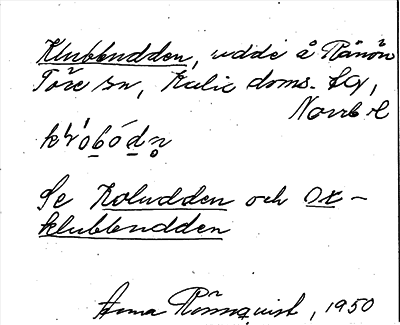 Klubbudden, udde å Rånön
Töre sn, Kalix doms. tg,
Norrb. l
Se Koludden och Ox-
klubbudden
Anna Rönnquist, 1950